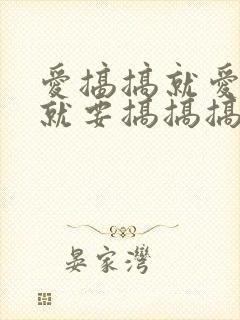 愛搞搞就愛
就要搞搞搞
晏家灣